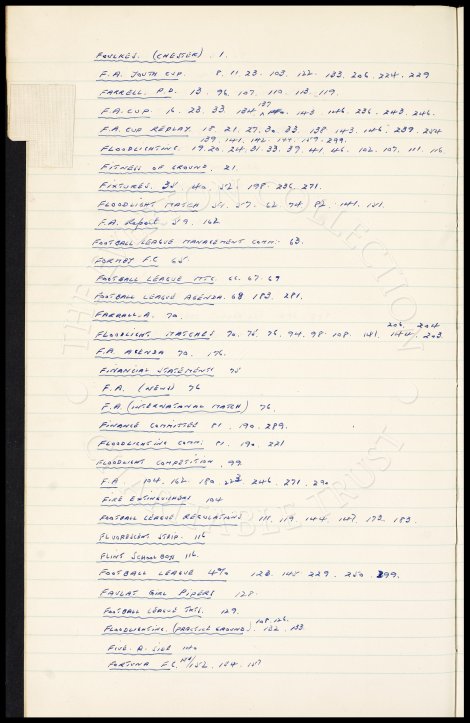 FOULKES. (CHESTER). 1.
F.A. YOUTH CUP. 8. 11. 23. 103. 122. 183. 206. 224. 229
FARRELL. P.D. 13. 96. 107. 110. 113. 119.
F.A. CUP. 16. 23. 33. 134 137 140. 143. 146. 236. 243. 246.
F.A. CUP REPLAY. 18. 21. 27. 30. 33. 138. 143. 146. 239. 254
FLOODLIGHTING. 19. 20. 24. 31. 33. 39. 41. 46. 102. 107. 111. 116
139. 141. 142. 144. 159. 299.
FITNESS OF GROUND. 21.
FIXTURES. 35. 40. 52. 198. 236. 271.
FLOODLIGHT MATCH 51. 57. 62. 74 82. 141. 151.
F.A. Report 59. 162
FOOTBALL LEAGUE MANAGEMENT COMM. 63.
FORMBY F.C. 65.
FOOTBALL LEAGUE MTG. 66. 67. 69
FOOTBALL LEAGUE AGENDA. 68 183. 281.
FARRALL. A. 70.
FLOODLIGHT MATCHES 70. 75. 76. 94. 98. 108. 181. 203.
206. 204
F.A. AGENDA 70. 176.
FINANCIAL STATEMENTS 75
F.A. (NEWS) 76
F.A. (INTERNATIONAL MATCH) 76.
FINANCE COMMITTEE 81. 190. 289.
FLOODLIGHTING COMM. 81. 190. 221
FLOODLIGHT COMPETITION. 99
F.A. 104. 162. 180. 223 246. 271. 290
FIRE EXTINGUISHERS 104
FOOTBALL LEAGUE REGULATIONS 111. 119. 144. 147. 173. 183.
FLUORESCENT STRIP. 116
FLINT SCHOOLBOYS 116.
FOOTBALL LEAGUE 4% 123. 145 229. 250. 299.
FAULAT GIRL PIPERS 128.
FOOTBALL LEAGUE MTG. 129.
FLOODLIGHTING. (PRACTICE GROUND). 132. 133.
108. 126.
FIVE. A. SIDE 140
FORTUNA F.C. 152. 154. 157
THE COLLECTION
CHARITABLE TRUST